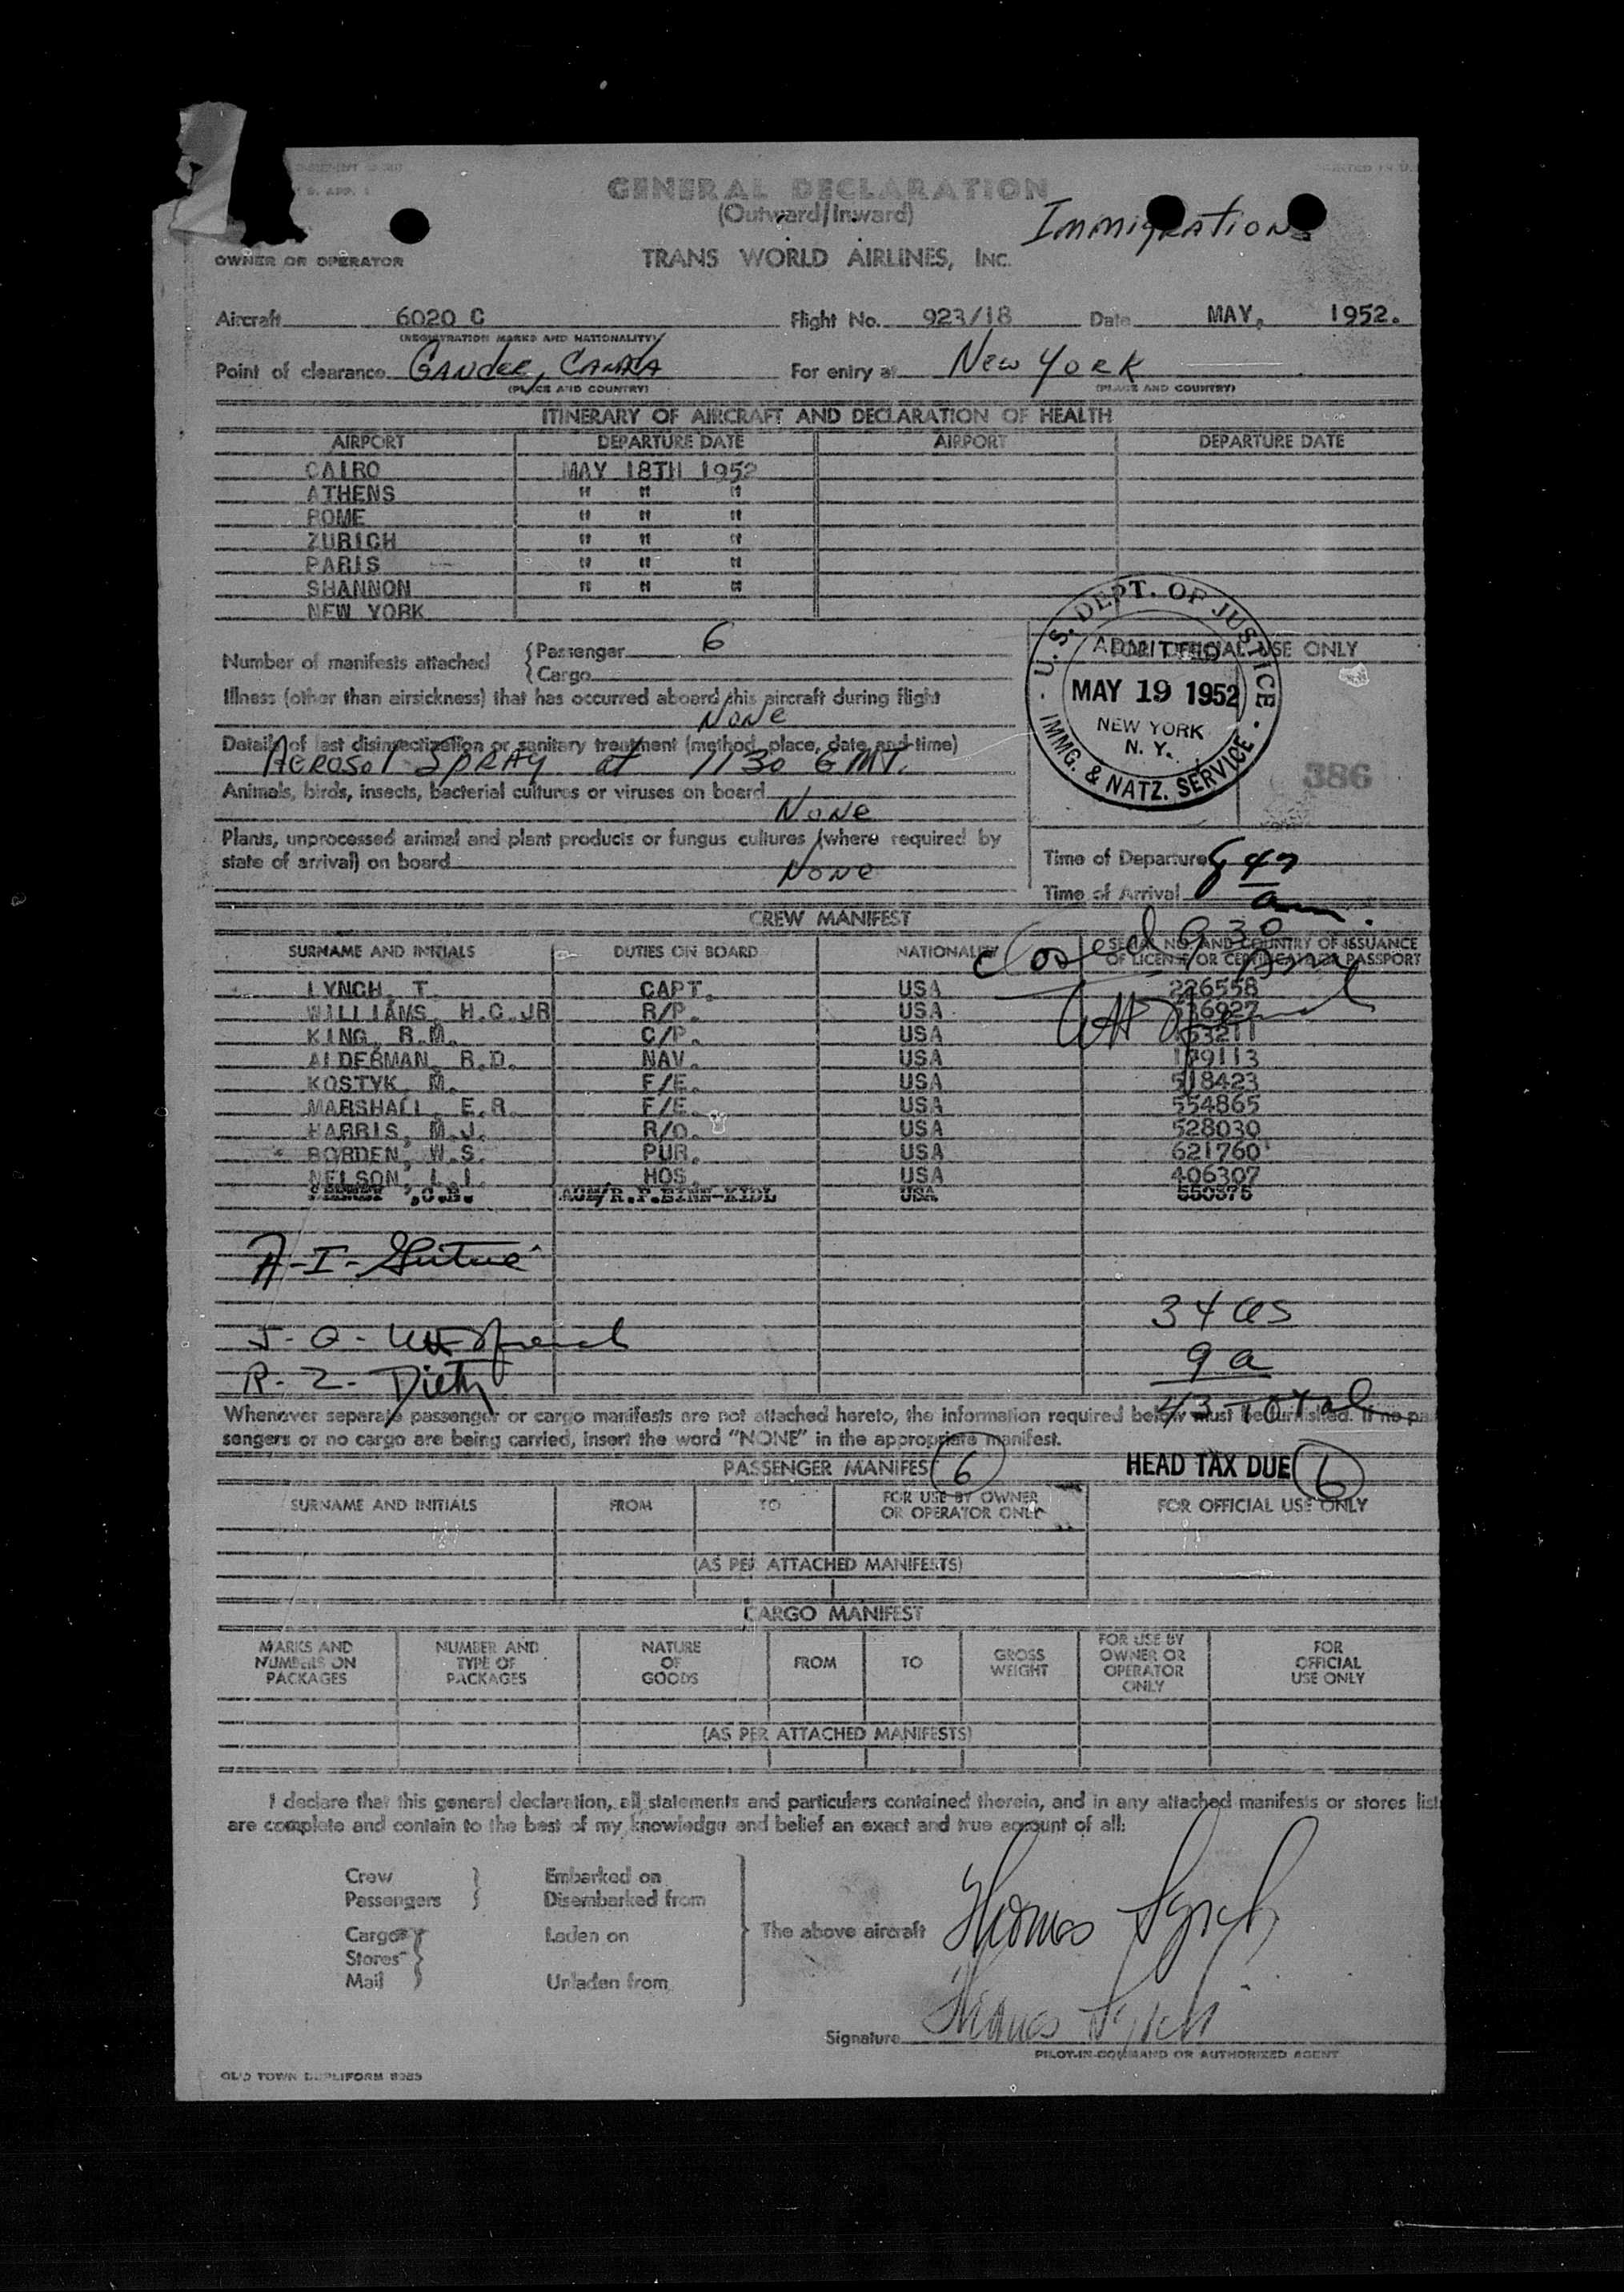 GENERAL DECLARATION
(Outward/Inward)
Immigrations
OWNER OR OPERATOR
TRANS WORLD AIRLINES, INC.
Aircraft 6020 C Flight No. 923/18 Date MAY, 1952.
(REGISTRATION MARKS AND NATIONALITY)
Point of clearance Gander, Canada For entry at New York
(PLACE AND COUNTRY) (PLACE AND COUNTRY)
ITINERARY OF AIRCRAFT AND DECLARATION OF HEALTH
AIRPORT DEPARTURE DATE AIRPORT DEPARTURE DATE
CAIRO MAY 18TH 1952
ATHENS " " "
ROME " " "
ZURICH " " "
PARIS " " "
SHANNON " " "
NEW YORK
Number of manifests attached { Passenger 6
{ Cargo
FOR OFFICIAL USE ONLY
U.S. DEPT. OF JUSTICE
ADMITTED
MAY 19 1952
NEW YORK
N. Y.
IMMG. & NATZ. SERVICE
386
Illness (other than airsickness) that has occurred aboard this aircraft during flight
None
Details of last disinsectization or sanitary treatment (method, place, date and time)
Aerosol Spray at 1130 GMT.
Animals, birds, insects, bacterial cultures or viruses on board
None
Plants, unprocessed animal and plant products or fungus cultures (where required by
state of arrival) on board
None
Time of Departure
Time of Arrival
am.
CREW MANIFEST
Closed 9 30
SURNAME AND INITIALS DUTIES ON BOARD NATIONALITY SERIAL NO. AND COUNTRY OF ISSUANCE
OF LICENSE OR CERTIFICATE OR PASSPORT
LYNCH, T. CAPT. USA 226558
WILLIAMS, H.C.JR R/P. USA
KING, R.M. C/P. USA
ALDERMAN, R.D. NAV. USA
KOSTYK, M. F/E. USA 518423
MARSHALL, E.R. F/E. USA 554865
HARRIS, M.J. R/O. USA 528030
BORDEN, W.S. PUR. USA 621760
NELSON, L.I. HOS. USA 406307
USA
A-I-
J-O-
R-Z- Dietz
34 US
9 a
43 Total
Whenever separate passenger or cargo manifests are not attached hereto, the information required below must be furnished. If no pas
sengers or no cargo are being carried, insert the word "NONE" in the appropriate manifest.
PASSENGER MANIFEST 6 HEAD TAX DUE 6
SURNAME AND INITIALS FROM TO FOR USE BY OWNER
OR OPERATOR ONLY FOR OFFICIAL USE ONLY
(AS PER ATTACHED MANIFESTS)
CARGO MANIFEST
MARKS AND
NUMBERS ON
PACKAGES
NUMBER AND
TYPE OF
PACKAGES
NATURE
OF
GOODS
FROM
TO
GROSS
WEIGHT
FOR USE BY
OWNER OR
OPERATOR
ONLY
FOR
OFFICIAL
USE ONLY
(AS PER ATTACHED MANIFESTS)
I declare that this general declaration, all statements and particulars contained therein, and in any attached manifests or stores list
are complete and contain to the best of my knowledge and belief an exact and true account of all:
Crew } Embarked on
Passengers } Disembarked from
Cargo } Laden on
Stores
Mail } Unladen from
The above aircraft Thomas Lynch
Signature Thomas Lynch
PILOT-IN-COMMAND OR AUTHORIZED AGENT
OLD TOWN DUPLIFORM